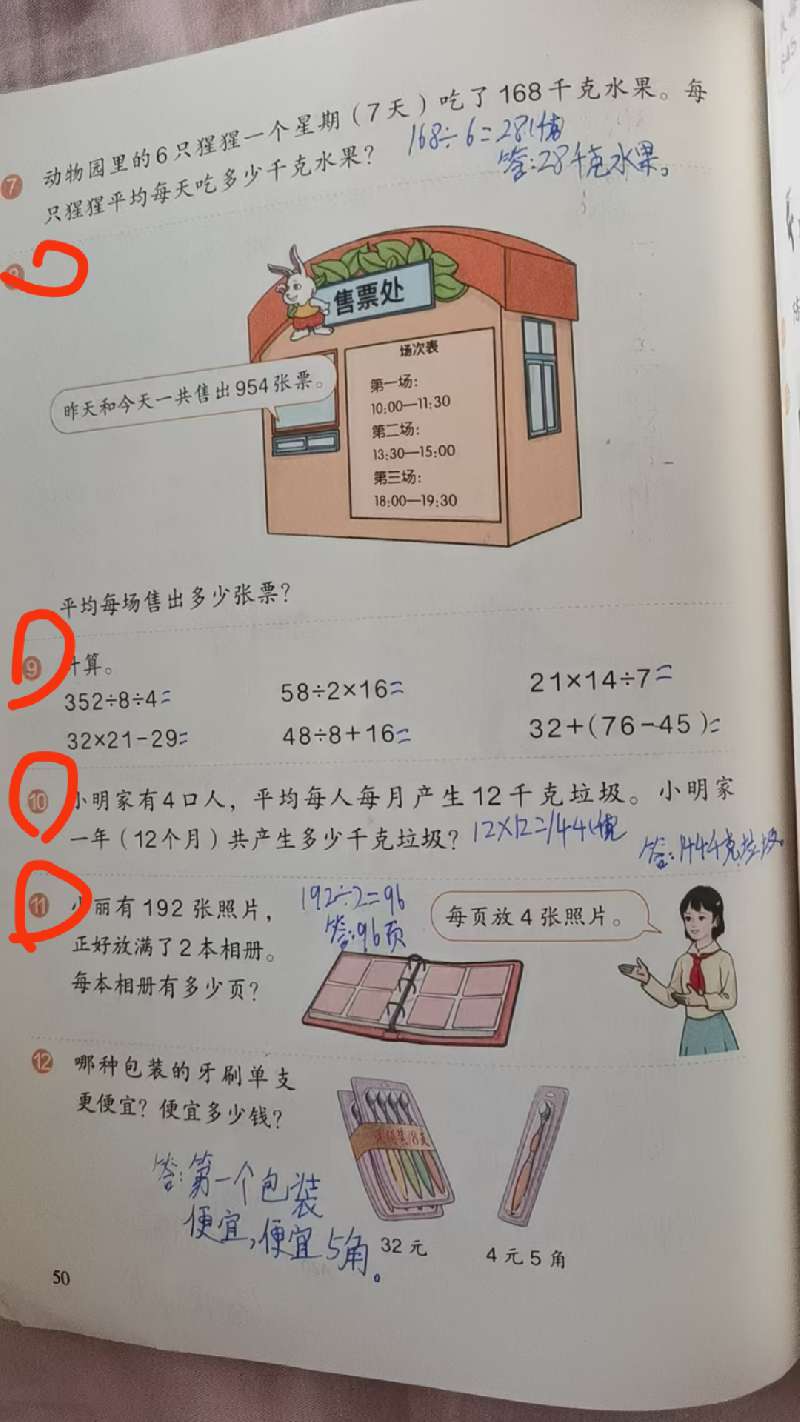 7 动物园里的6只猩猩一个星期(7天)吃了168千克水果。每
只猩猩平均每天吃多少千克水果?
168÷6=28(千克)
答:28千克水果。
售票处
昨天和今天一共售出954张票。
场次表
第一场:
10:00—11:30
第二场:
13:30—15:00
第三场:
18:00—19:30
平均每场售出多少张票?
9 计算。
352÷8÷4= 58÷2×16= 21×14÷7=
32×21-29= 48÷8+16= 32+(76-45)=
10 小明家有4口人,平均每人每月产生12千克垃圾。小明家
一年(12个月)共产生多少千克垃圾?
12×12=144(千克)
答:144千克垃圾。
11 小丽有192张照片,
正好放满了2本相册。
每本相册有多少页?
192÷2=96
答:96页
每页放4张照片。
12 哪种包装的牙刷单支
更便宜?便宜多少钱?
答:第一个包装
便宜,便宜5角。
32元
4元5角
50